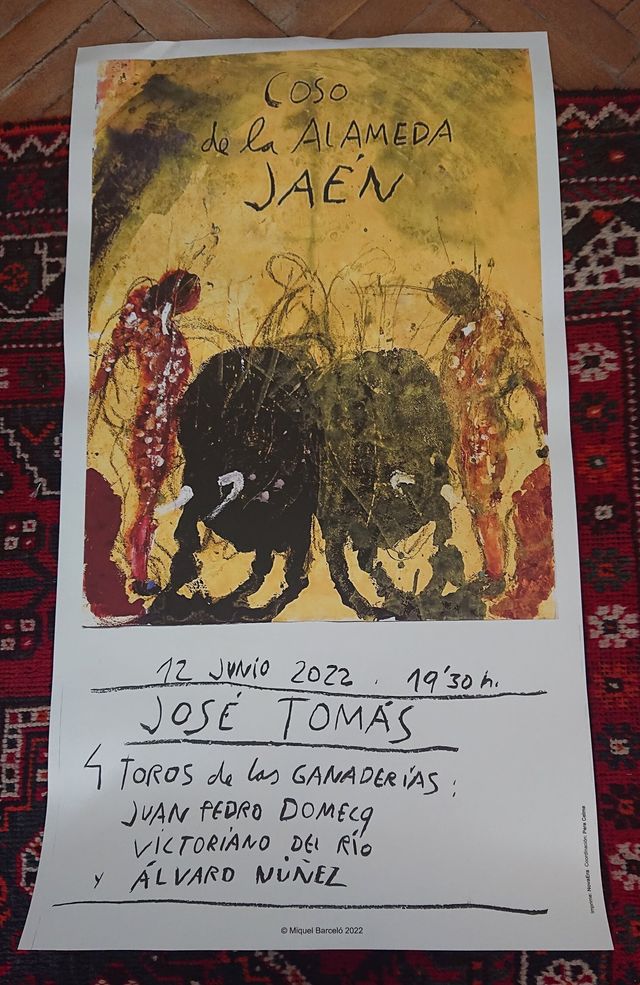 COSO
de la ALAMEDA
JAÉN
12 JUNIO 2022. 19'30 h.
JOSÉ TOMÁS
4 TOROS de las GANADERÍAS:
JUAN PEDRO DOMECQ
VICTORIANO DEL RÍO
y ÁLVARO NÚÑEZ
© Miquel Barceló 2022
Imprime: NovaEra Coordinación: Pere Calma